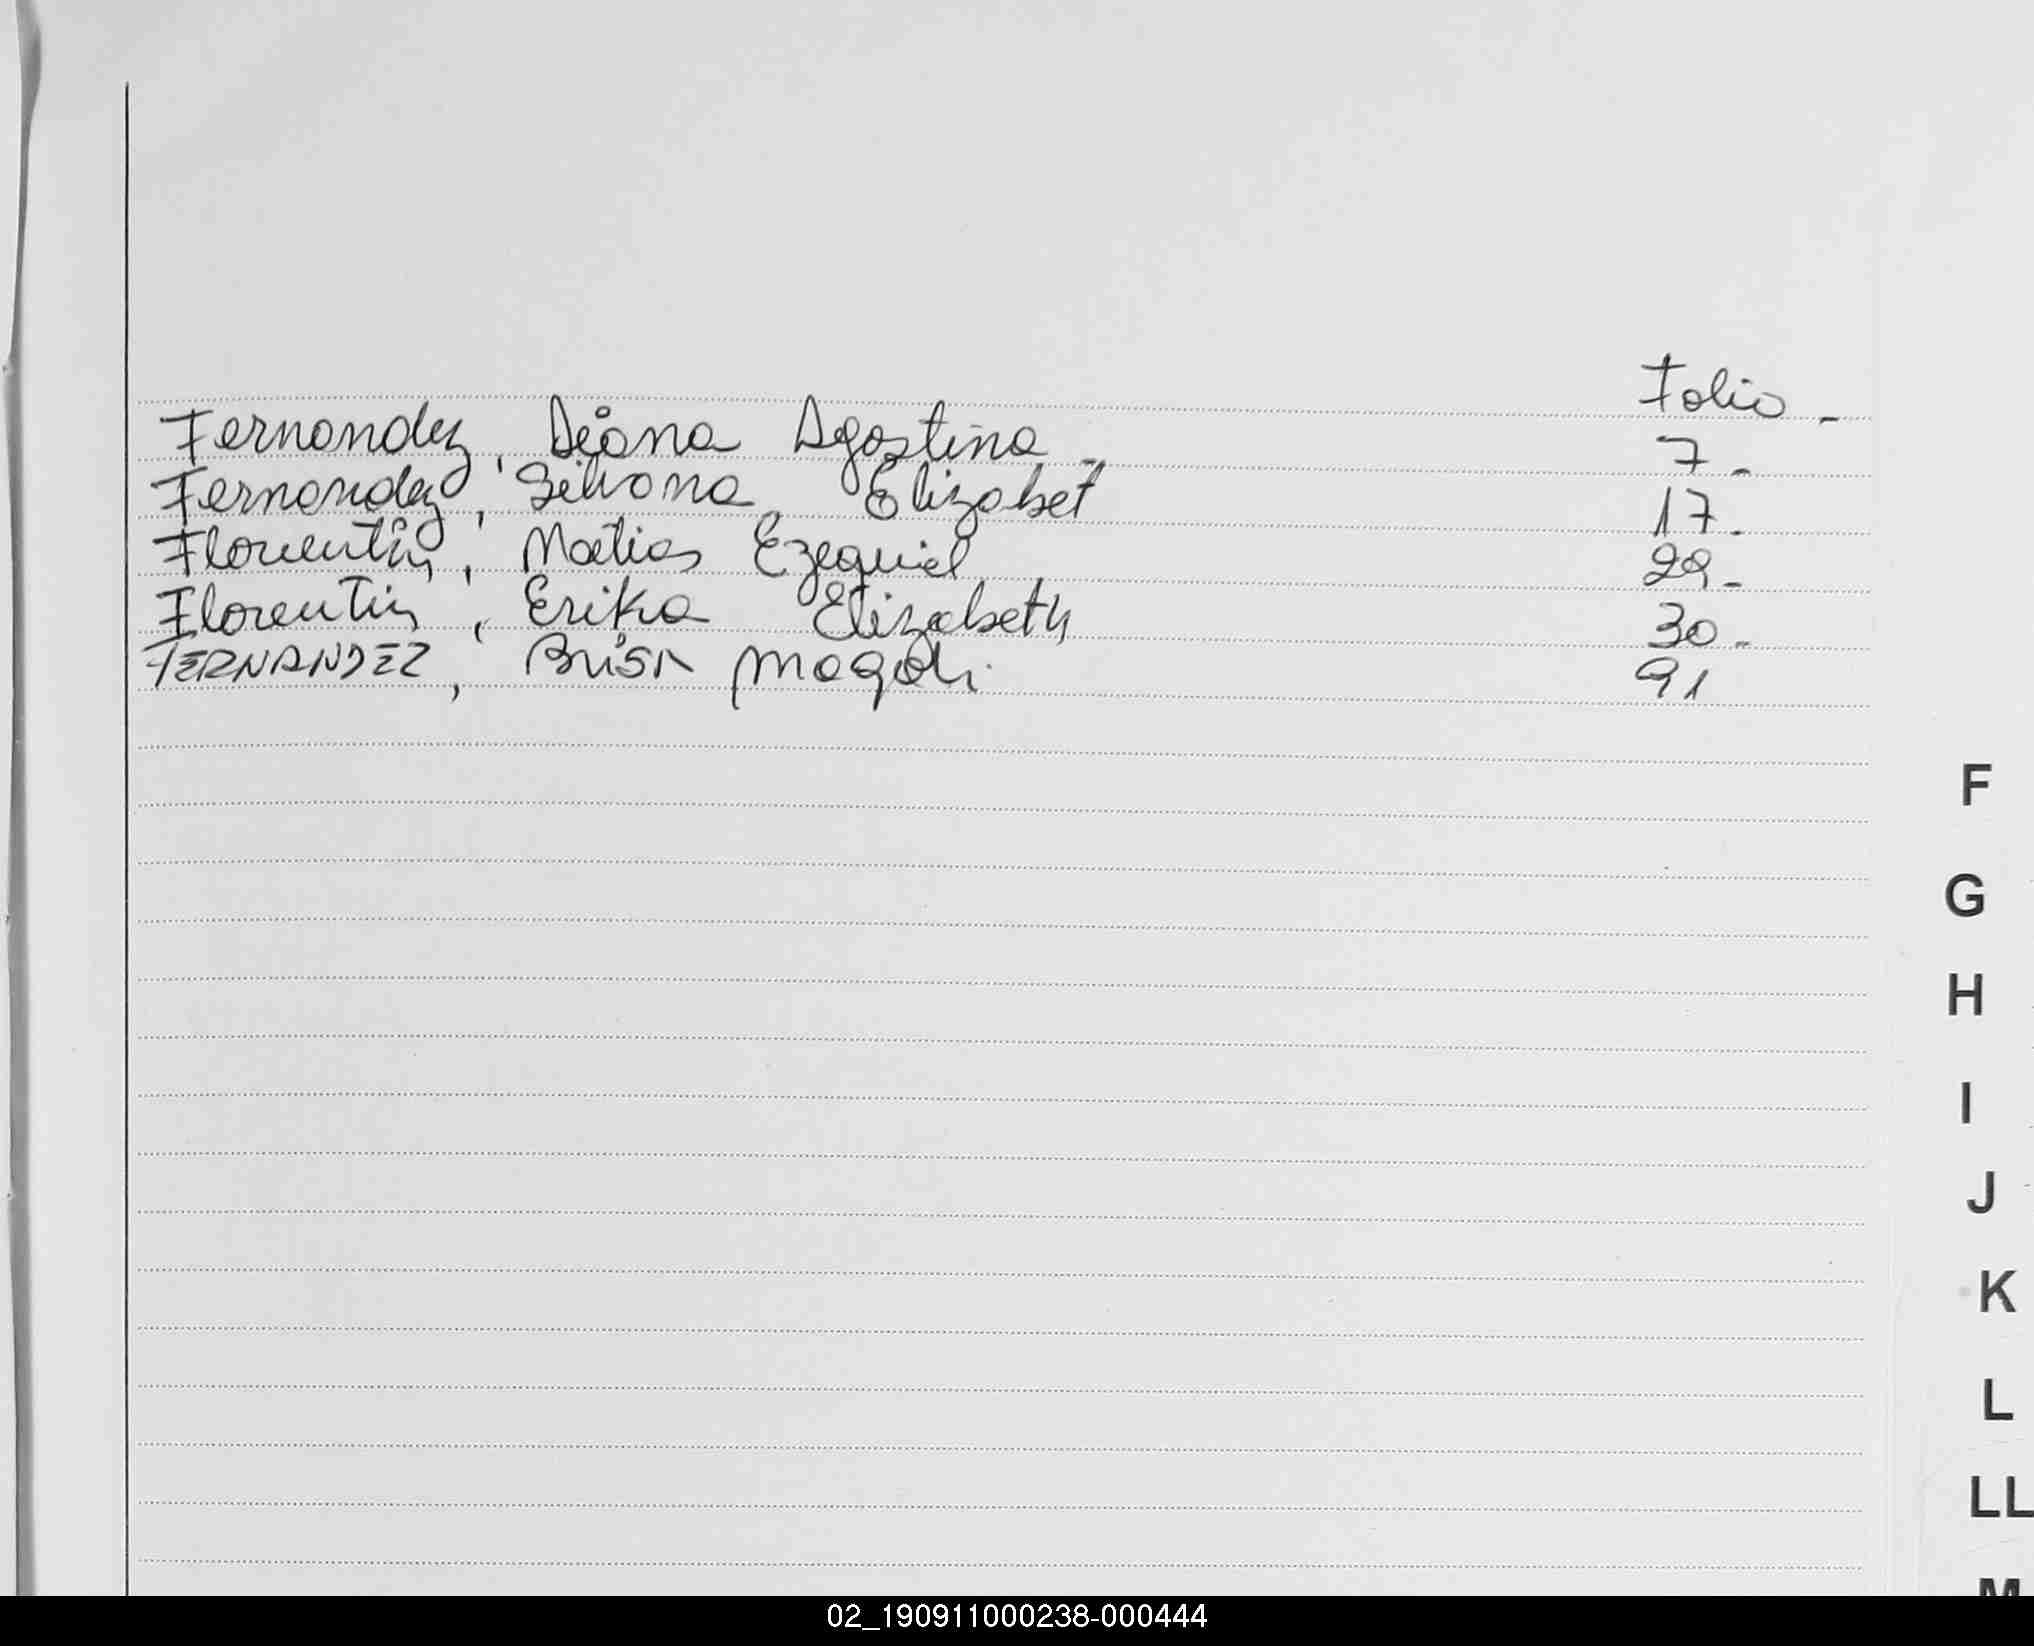 Folio -
Fernandez, Diana Agostina - 7 -
Fernandez, Silvana Elizabet 17 -
Florentin, Matias Ezequiel 29 -
Florentin, Erika Elizabeth 30 -
FERNANDEZ, Brisa Magali. 91
F
G
H
I
J
K
L
LL
M
02_190911000238-000444